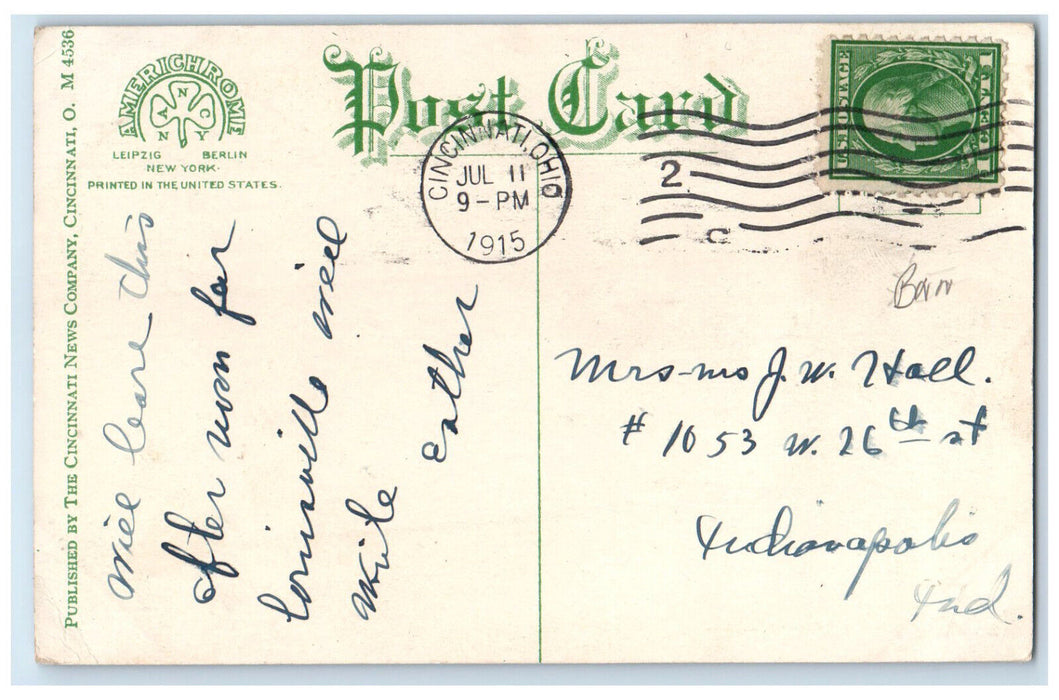 PUBLISHED BY THE CINCINNATI NEWS COMPANY, CINCINNATI, O. M 4536
AMERICHROME
ANCO
NNY
LEIPZIG BERLIN
NEW YORK.
PRINTED IN THE UNITED STATES.
Post Card
CINCINNATI, OHIO
JUL 11
9-PM
1915
2
C
U.S. POSTAGE
1 CENT 1
will leave this
after noon for
louisville will
write
Mrs J. W. Hall.
# 1053 W. 26th st
Indianapolis
Ind.